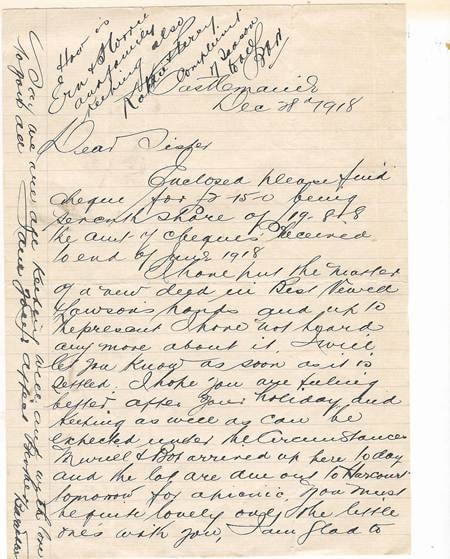 Castlemaine
Dec 28th 1918
Dear Sister
Enclosed please find
cheque for £2-15-0 being
seventh share of 19-8-8
the amt of cheques received
to end of June 1918
I have put the matter
of a new deed in Best Newell
Lawson's hands and up to
the present I have not heard
any more about it. I will
let you know as soon as it is
settled. I hope you are feeling
better after your holiday and
keeping as well as can be
expected under the circumstances
Muriel & Bob arrived up here today
and the lot are due out to Harcourt
tomorrow for a picnic. You must
be quite lovely only the little
one's with you, I am glad to
How is
Ern &
and family
keeping also
Complement
of Season
to all
say we are all keeping well and with love
to you all I am your affect Brother